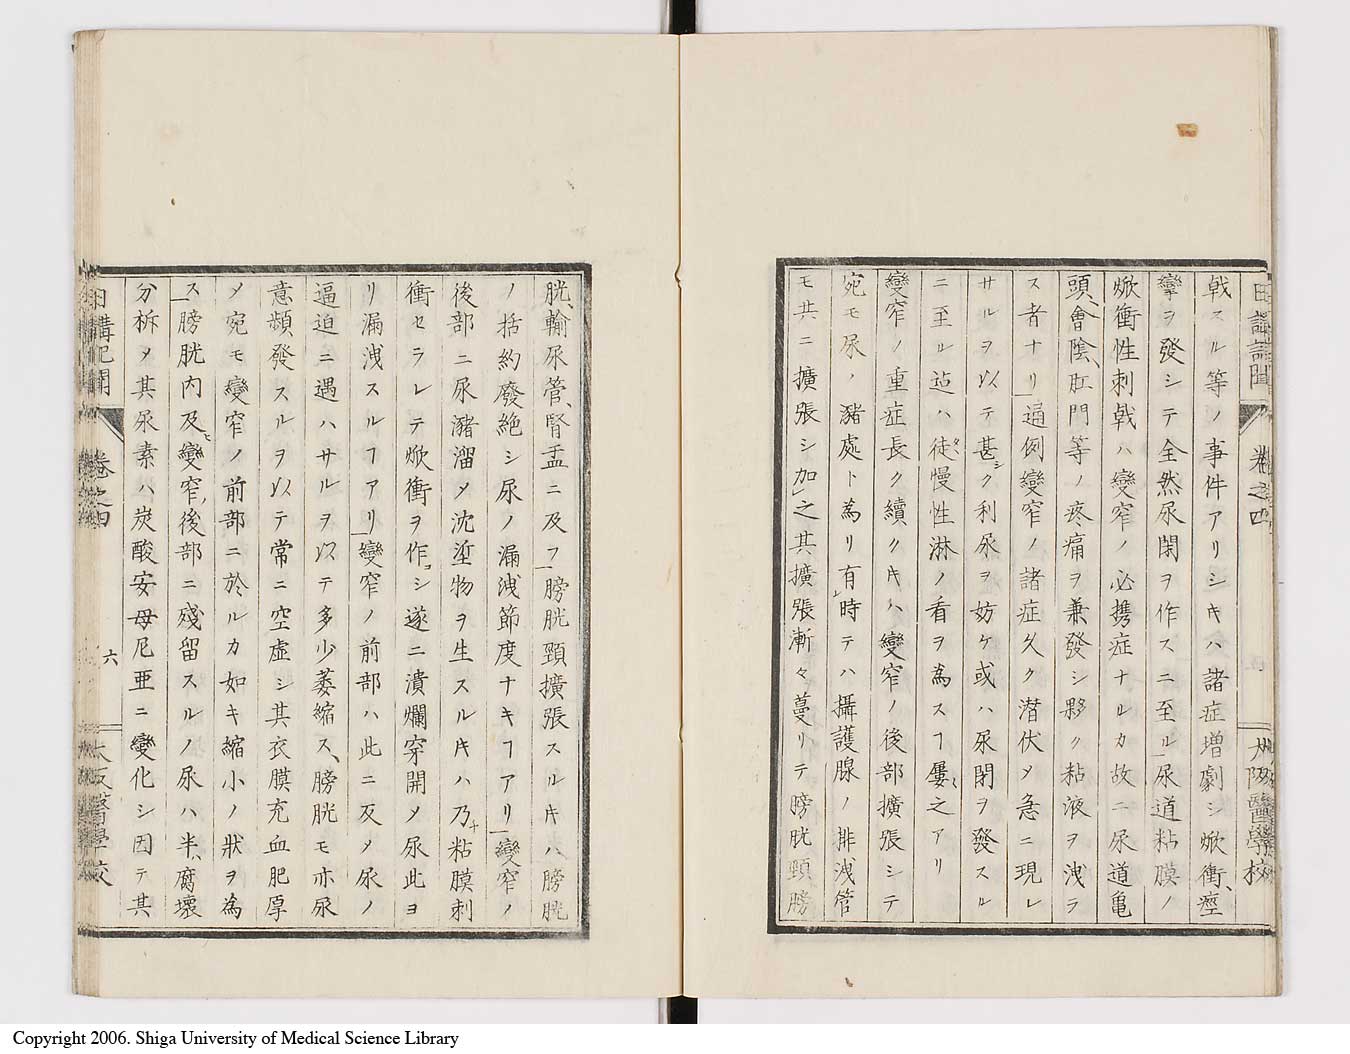 日講記聞 卷之四 大阪醫學校
戟スル等ノ事件アリシキハ諸症増劇シ焮衝、痙
攣ヲ發シテ全然尿閉ヲ作スニ至ル尿道粘膜ノ
焮衝性刺戟ハ變窄ノ必携症ナルカ故ニ尿道亀
頭、會陰、肛門等ノ疼痛ヲ兼發シ夥ク粘液ヲ洩ラ
ス者ナリ通例變窄ノ諸症久ク潜伏メ急ニ現レ
サルヲ以テ甚シク利尿ヲ妨ケ或ハ尿閉ヲ發スル
ニ至ル迠ハ徒タ慢性淋ノ看ヲ為スヿ屢〻之アリ
變窄ノ重症長ク續クキハ變窄ノ後部擴張シテ
宛モ尿ノ豬處ト為リ有時テハ攝護腺ノ排洩管
モ共ニ擴張シ加之其擴張漸々蔓リテ膀胱頸膀
胱、輸尿管、腎盂ニ及フ膀胱頸擴張スルキハ膀胱
ノ括約廢絶シ尿ノ漏洩節度ナキヿアリ變窄ノ
後部ニ尿瀦溜メ沈垽物ヲ生スルキハ乃チ粘膜刺
衝セラレテ焮衝ヲ作シ遂ニ潰爛穿開メ尿此ヨ
リ漏洩スルヿアリ變窄ノ前部ハ此ニ反メ尿ノ
逼迫ニ遇ハサルヲ以テ多少萎縮ス、膀胱モ亦尿
意頻發スルヲ以テ常ニ空虚シ其衣膜充血肥厚
メ宛モ變窄ノ前部ニ於ルカ如キ縮小ノ狀ヲ為
ス膀胱内及ヒ變窄ノ後部ニ殘留スルノ尿ハ半、腐壞
分析メ其尿素ハ炭酸安母尼亜ニ變化シ因テ其
日講記聞 卷之四 六 大阪醫學校
Copyright 2006. Shiga University of Medical Science Library